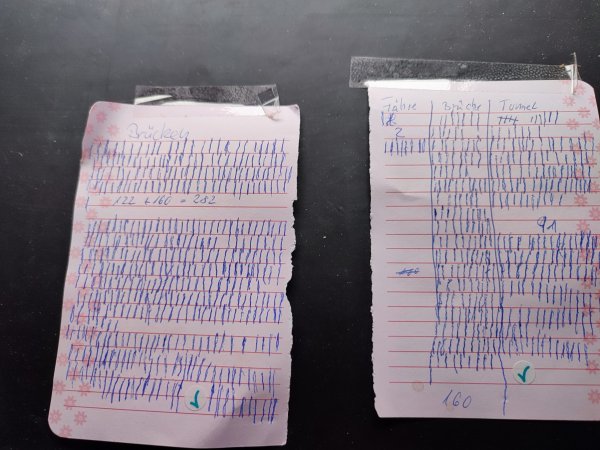 Brücken
122 + 160 = 282
Fähre Brücke Tunnel
2
91
160